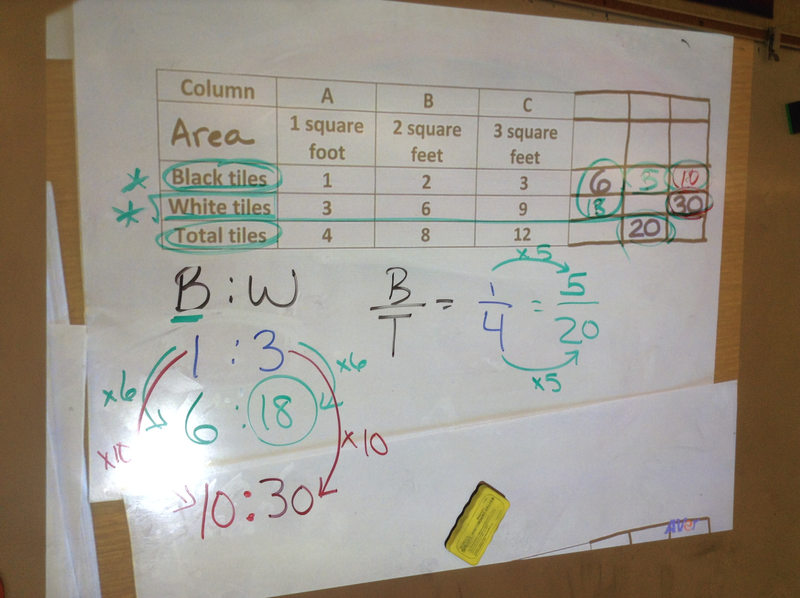 Column A B C
Area 1 square foot 2 square feet 3 square feet
* Black tiles 1 2 3 6 5 10
* White tiles 3 6 9 18 30
Total tiles 4 8 12 20
B : W
B/T = 1/4 = 5/20
x5
x5
1 : 3
x6 x6
6 : 18
x10 x10
10 : 30